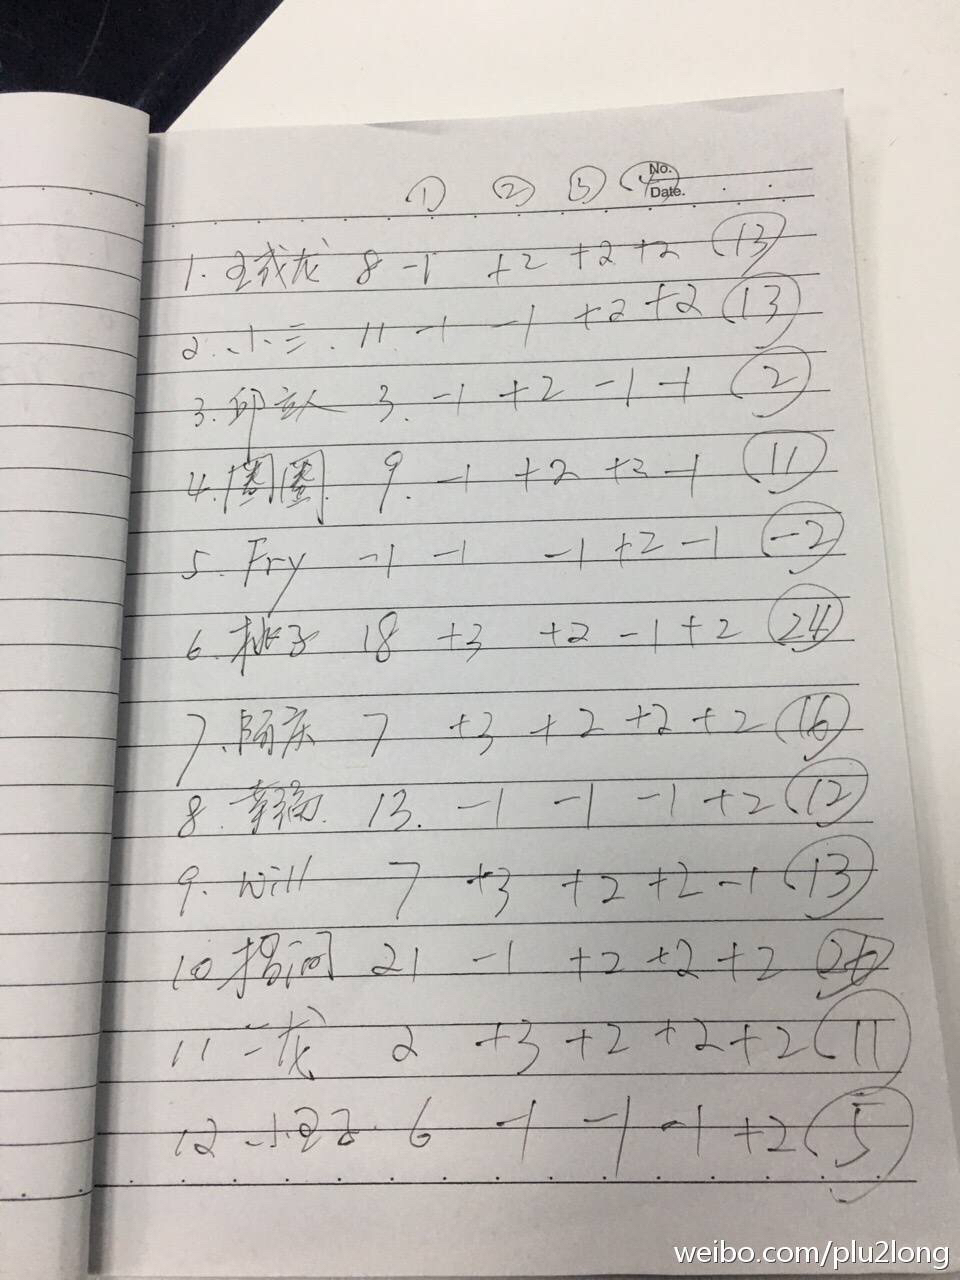 ① ② ③ ④ No.
Date.
1. 王战龙 8 -1 +2 +2 +2 13
2. 小三. 11. -1 -1 +2 +2 13
3. 3. -1 +2 -1 -1 2
4. 圈圈. 9. -1 +2 +2 -1 11
5. Fry -1 -1 -1 +2 -1 -2
6. 桃子 18 +3 +2 -1 +2 24
7. 7 +3 +2 +2 +2 16
8. 幸福. 13. -1 -1 -1 +2 12
9. Will 7 +3 +2 +2 -1 13
10 21 -1 +2 +2 +2 26
11 一龙 2 +3 +2 +2 +2 11
12 6 -1 -1 -1 +2 5
weibo.com/plu2long